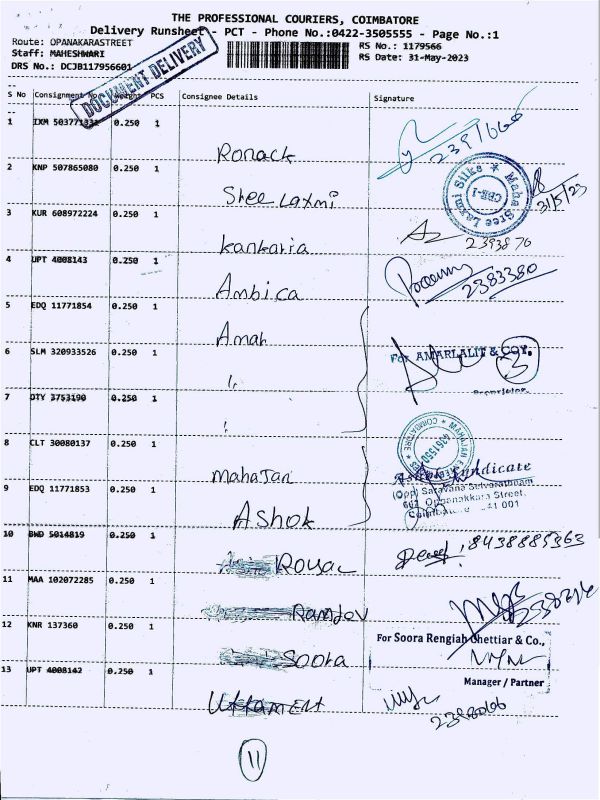 THE PROFESSIONAL COURIERS, COIMBATORE
Delivery Runsheet - PCT - Phone No.:0422-3505555 - Page No.:1
Route: OPANAKARASTREET
RS No.: 1179566
Staff: MAHESHWARI
RS Date: 31-May-2023
DRS No.: DCJB117956601
DOCUMENT DELIVERY
S No Consignment No. Weight PCS Consignee Details Signature
1 IXM 0.250 1
Ronack
2 KNP 507865080 0.250 1
Sree Laxmi
Maha Sree Laxmi Silks
CBE-1
31/5/23
3 KUR 608972224 0.250 1
Kankaria
2393870
4 UPT 4008143 0.250 1
Ambica
2383380
5 EDQ 11771854 0.250 1
Amar
6 SLM 320933526 0.250 1
"
For AMARLALIT & COY.
3
Proprietor
7 DTY 3753190 0.250 1
"
8 CLT 30080137 0.250 1
Mahajan
COIMBATORE
Ashok Syndicate
(Opp) Saravana Selvarathnam
Oppanakkara Street,
9 EDQ 11771853 0.250 1
Ashok
Coimbatore 641 001
10 BWD 5014819 0.250 1
Royal
8438885363
11 MAA 102072285 0.250 1
Ramdev
12 KNR 137360 0.250 1
Soora
For Soora Rengiah Chettiar & Co.,
Manager / Partner
13 UPT 4008142 0.250 1
11